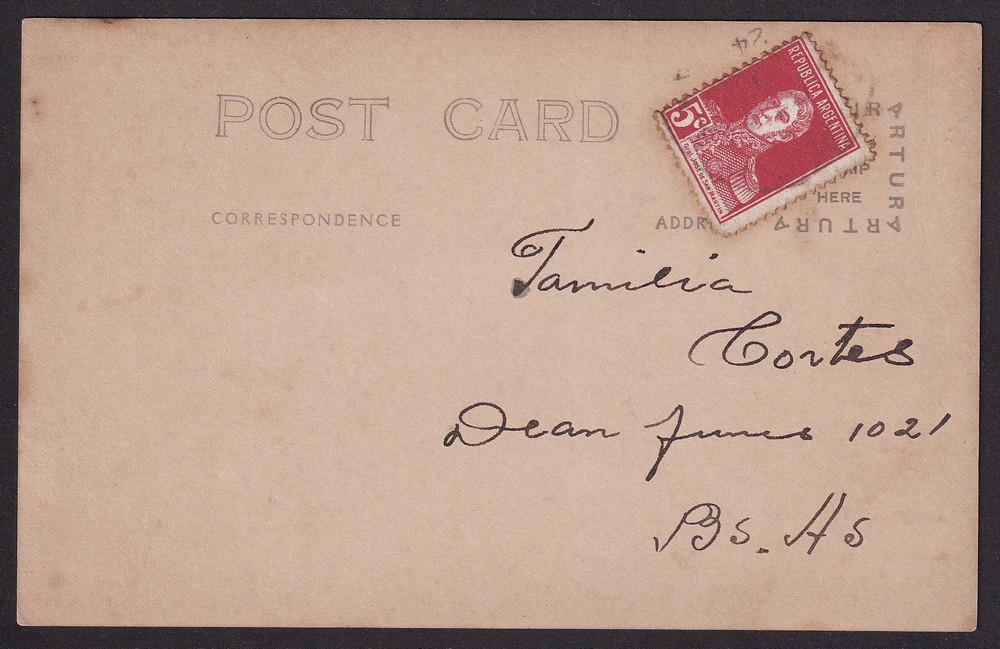 24
POST CARD
REPUBLICA ARGENTINA
5c
Gral. José de San Martin
ARTURA
HERE
CORRESPONDENCE
ARTURA
Familia
Cortes
Dean Funes 1021
Bs. As